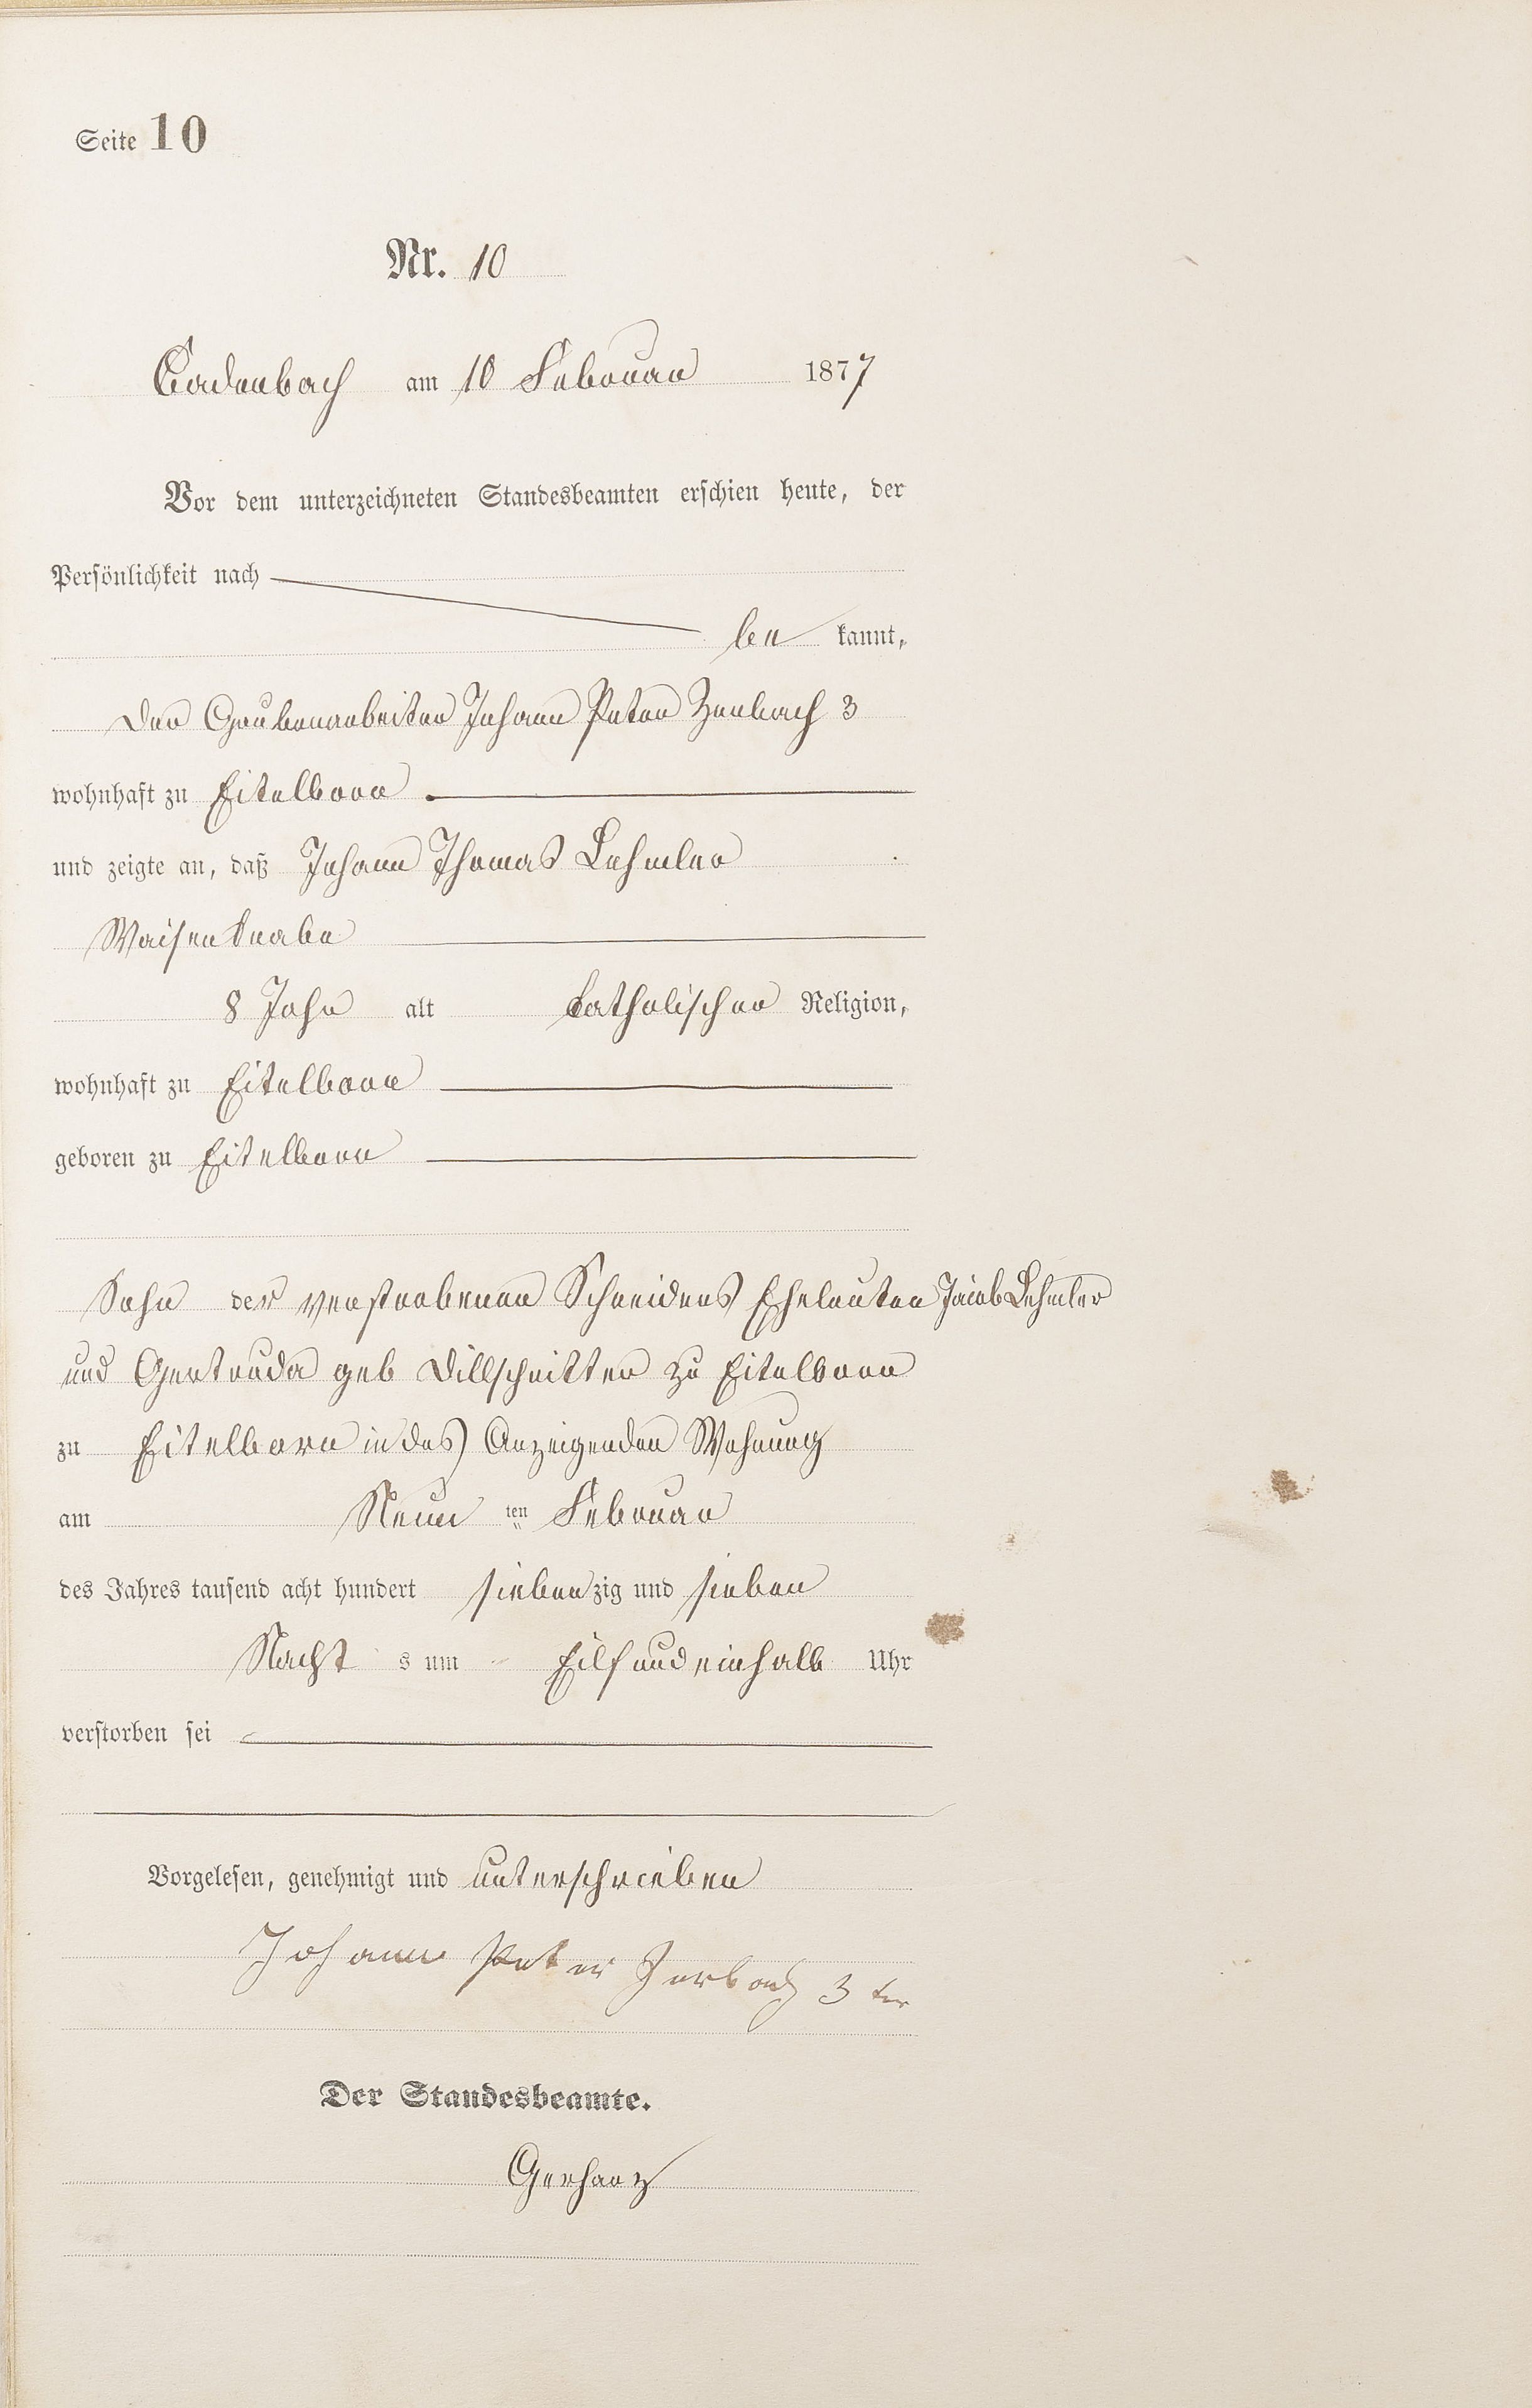 Seite 10
Nr. 10
Cadenbach am 10 Februar 1877
Vor dem unterzeichneten Standesbeamten erschien heute, der
Persönlichkeit nach
be kannt,
der Grubenarbeiter Johann Peter Zerbach 3
wohnhaft zu Eitelborn
und zeigte an, daß Johann Thomas Lehmler
Waisenknabe
8 Jahr alt katholischer Religion,
wohnhaft zu Eitelborn
geboren zu Eitelborn
Sohn der verstorbenen Schneiders Eheleuten Jacob Lehmler
und Gertruda geb Dillschnitter zu Eitelborn
zu Eitelborn in des Anzeigenden Wohnung
am Neun ten Februar
des Jahres tausend acht hundert siebenzig und sieben
Nacht s um Eilfundeinhalb Uhr
verstorben sei
Vorgelesen, genehmigt und unterschrieben
Johann Peter Zerbach 3 ter
Der Standesbeamte.
Gerharz